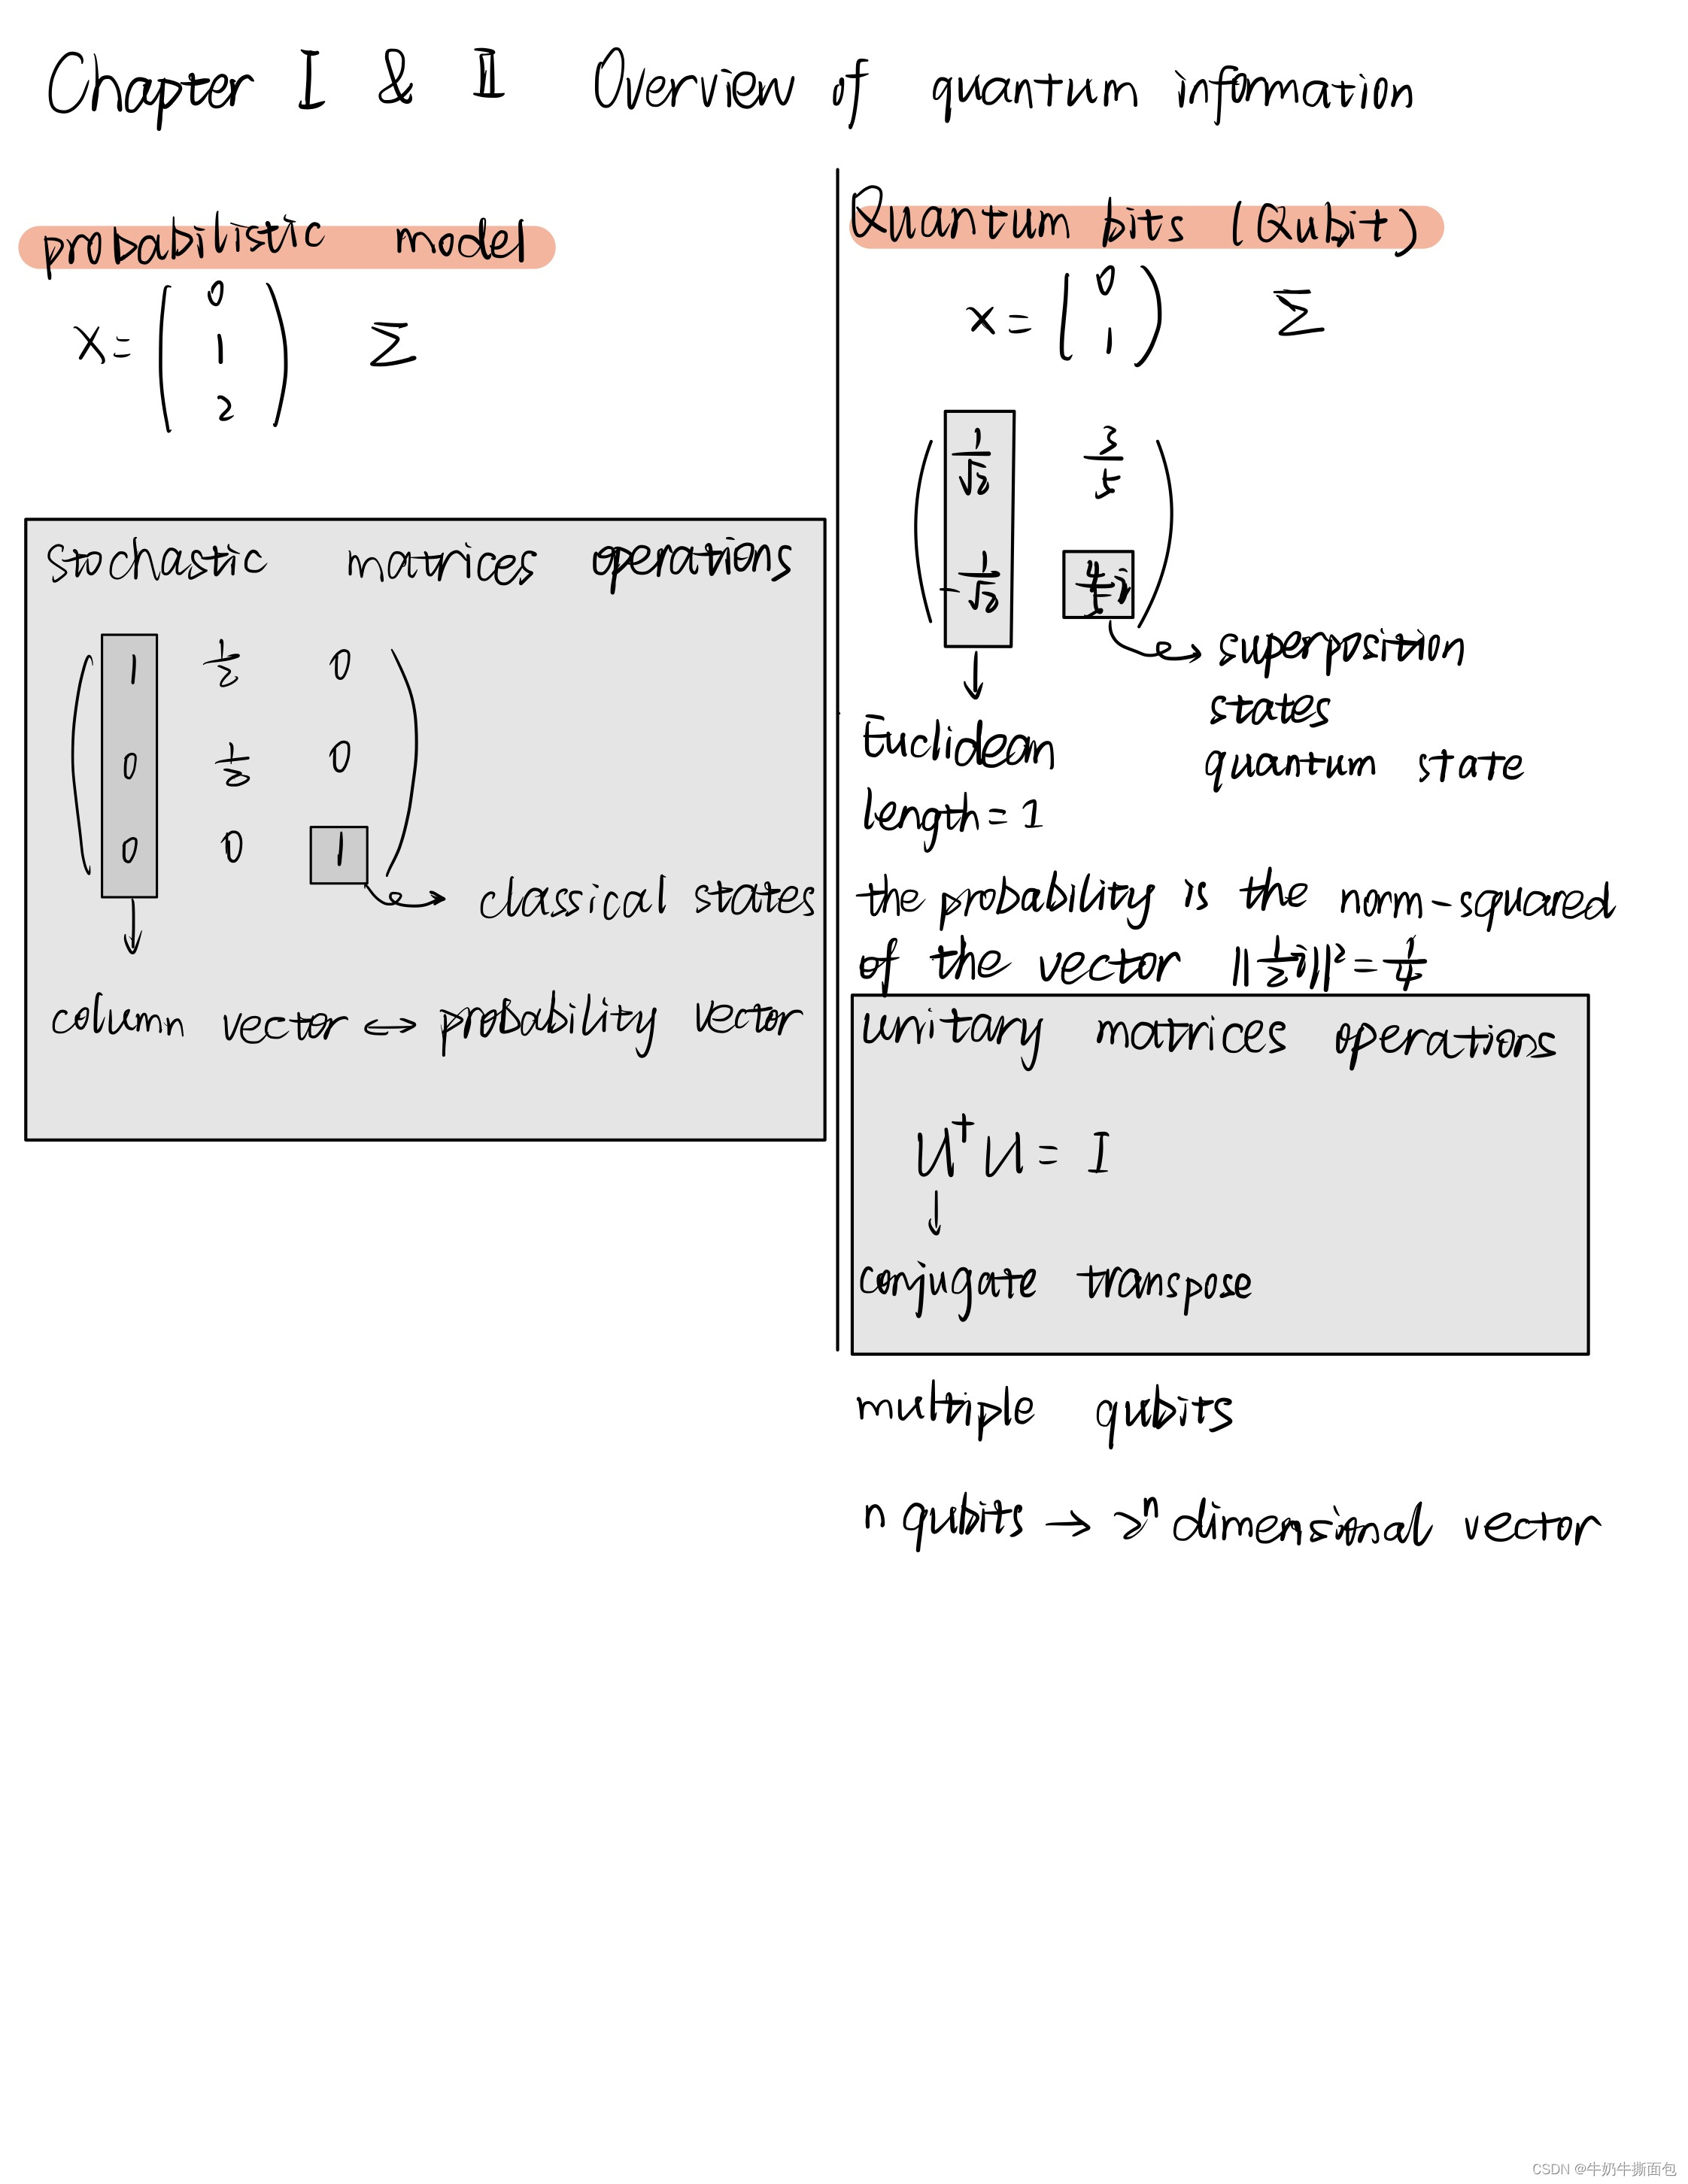 Chapter I & II Overview of quantum information
probabilistic model
X = ( 0
1
2 ) Σ
stochastic matrices operations
( 1 1/2 0
0 1/2 0
0 0 1 )
classical states
column vector ↔ probability vector
Quantum bits (Qubit)
X = ( 0
1 ) Σ
( 1/√2 3/5
-1/√2 4/5 i )
superposition
states
quantum state
Euclidean
length = 1
the probability is the norm-squared
of the vector ||1/2 i||² = 1/4
unitary matrices operations
U† U = I
conjugate transpose
multiple qubits
n qubits → 2ⁿ dimensional vector
CSDN @牛奶牛撕面包